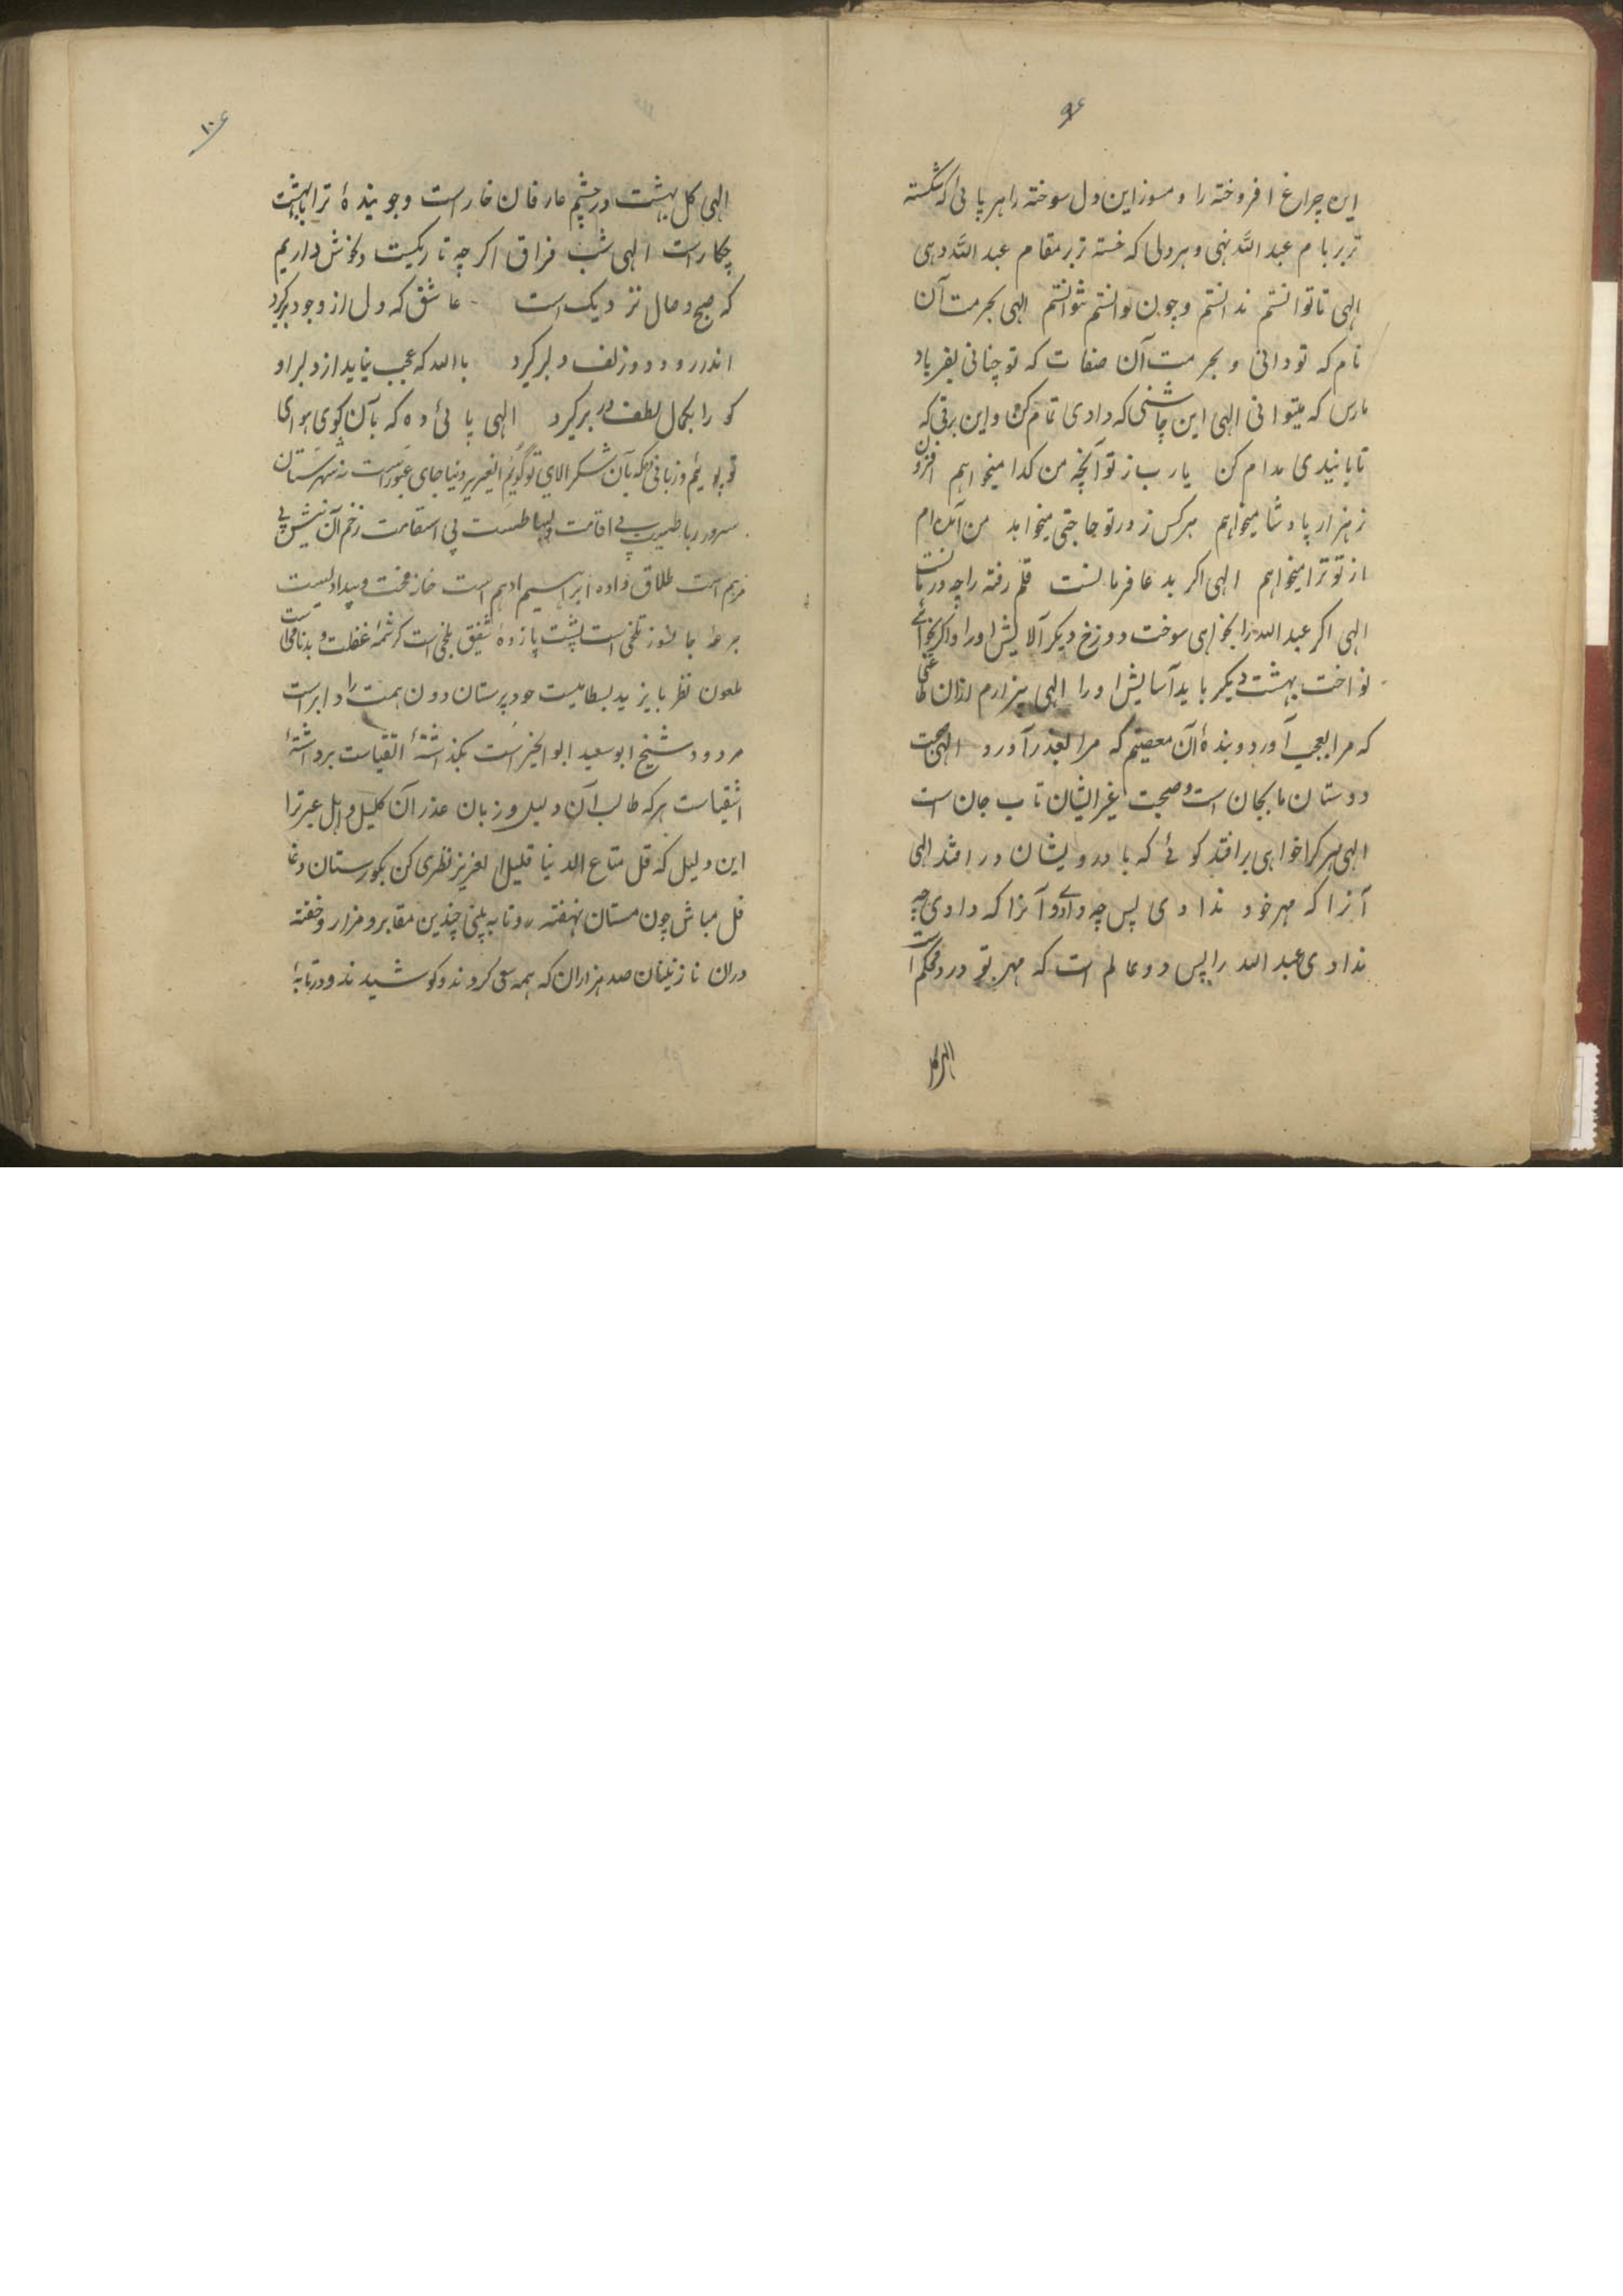 ۹
این چراغ افروخته را و مسوز این دل سوخته را هر پائی که شکسته
تر بر بام عبد الله نهی و هر دلی که خسته تر بر مقام عبد الله دهی
الهی تا توانستم ندانستم و چون دانستم نتوانستم الهی بحرمت آن
نام که تو دانی و بحرمت آن صفات که تو چنانی بفریاد
مارس که میتوانی الهی این چاشنی که دادی تمام کن و این برقی که
تابانیدی مدام کن یا رب ز تو آنچه من کدا میخواهم افزون
ز هزار پادشا میخواهم هر کس ز در تو حاجتی میخواهد من آمده ام
از تو ترا میخواهم الهی اکر بد عا فرمانست قلم رفته را چه درمانست
الهی اکر عبد الله را بخواهی سوخت دوزخ دیکر آلایش او را و اکر بخواهی
نواخت بهشت دیکر باید آسایش او را الهی بیزارم ازان طاعتی
که مرا بعجب آورد و بنده آن معصیتم که مرا بعذر آورد الهی صحبت
دوستان ما بجان است و صحبت غیر ایشان تاب جان است
الهی هر کرا خواهی بر افتد کوئے که با درویشان در افتد الهی
آنرا که مهر خود ندادی پس چه دادی و آنرا که دادی چه
ندادی عبد الله را پس دو عالم است که مهر تو درو محکم است
الهی کل
۱۰
الهی کل بهشت در چشم عارفان خار است و جوینده ترا با بهشت
چکار است الهی شب فراق اکر چه تاریکیست دلخوش داریم
که صبح وصال نزدیک است عاشق که دل از وجود برکیرد
اندر رود و دو زلف دلبر کیرد بالله که عجب نیاید از دلبر او
کو را بکمال لطف در بر کیرد الهی پائی ده که بآن کوی هوای
تو پوئیم و زبانی ده که بآن شکر الای تو کوئیم ایعزیز دنیا جای عبور است نه شهرستان
سرور رباطیست بی اقامت و بساطیست بی استقامت زخم آن نیش بی
مرهم است طلاق داده ابراهیم ادهم است خانه محنت و بیدادیست
جرعه جانسوز تلخی است پشت پا زده شفیق بلخی است کرشمه غفلت و بدنامی است
ملعون نظر بایزید بسطامیست خود پرستان دون همت را دابر است
مردود شیخ ابو سعید ابو الخیر است بکذاشته اتقیاست برداشته
اشقیاست هر که طالب آن ذلیل و زبان عذر آن کلیل و اهل عبرترا
این دلیل که قل متاع الدنیا قلیل ایعزیز نظری کن بکورستان و غا
فل مباش چون مستان نهفته رو تا به بینی چندین مقابر و مزار و خفته
دران نازنینان صد هزاران که همه سعی کردند و کوشیدند و در تابهٔ